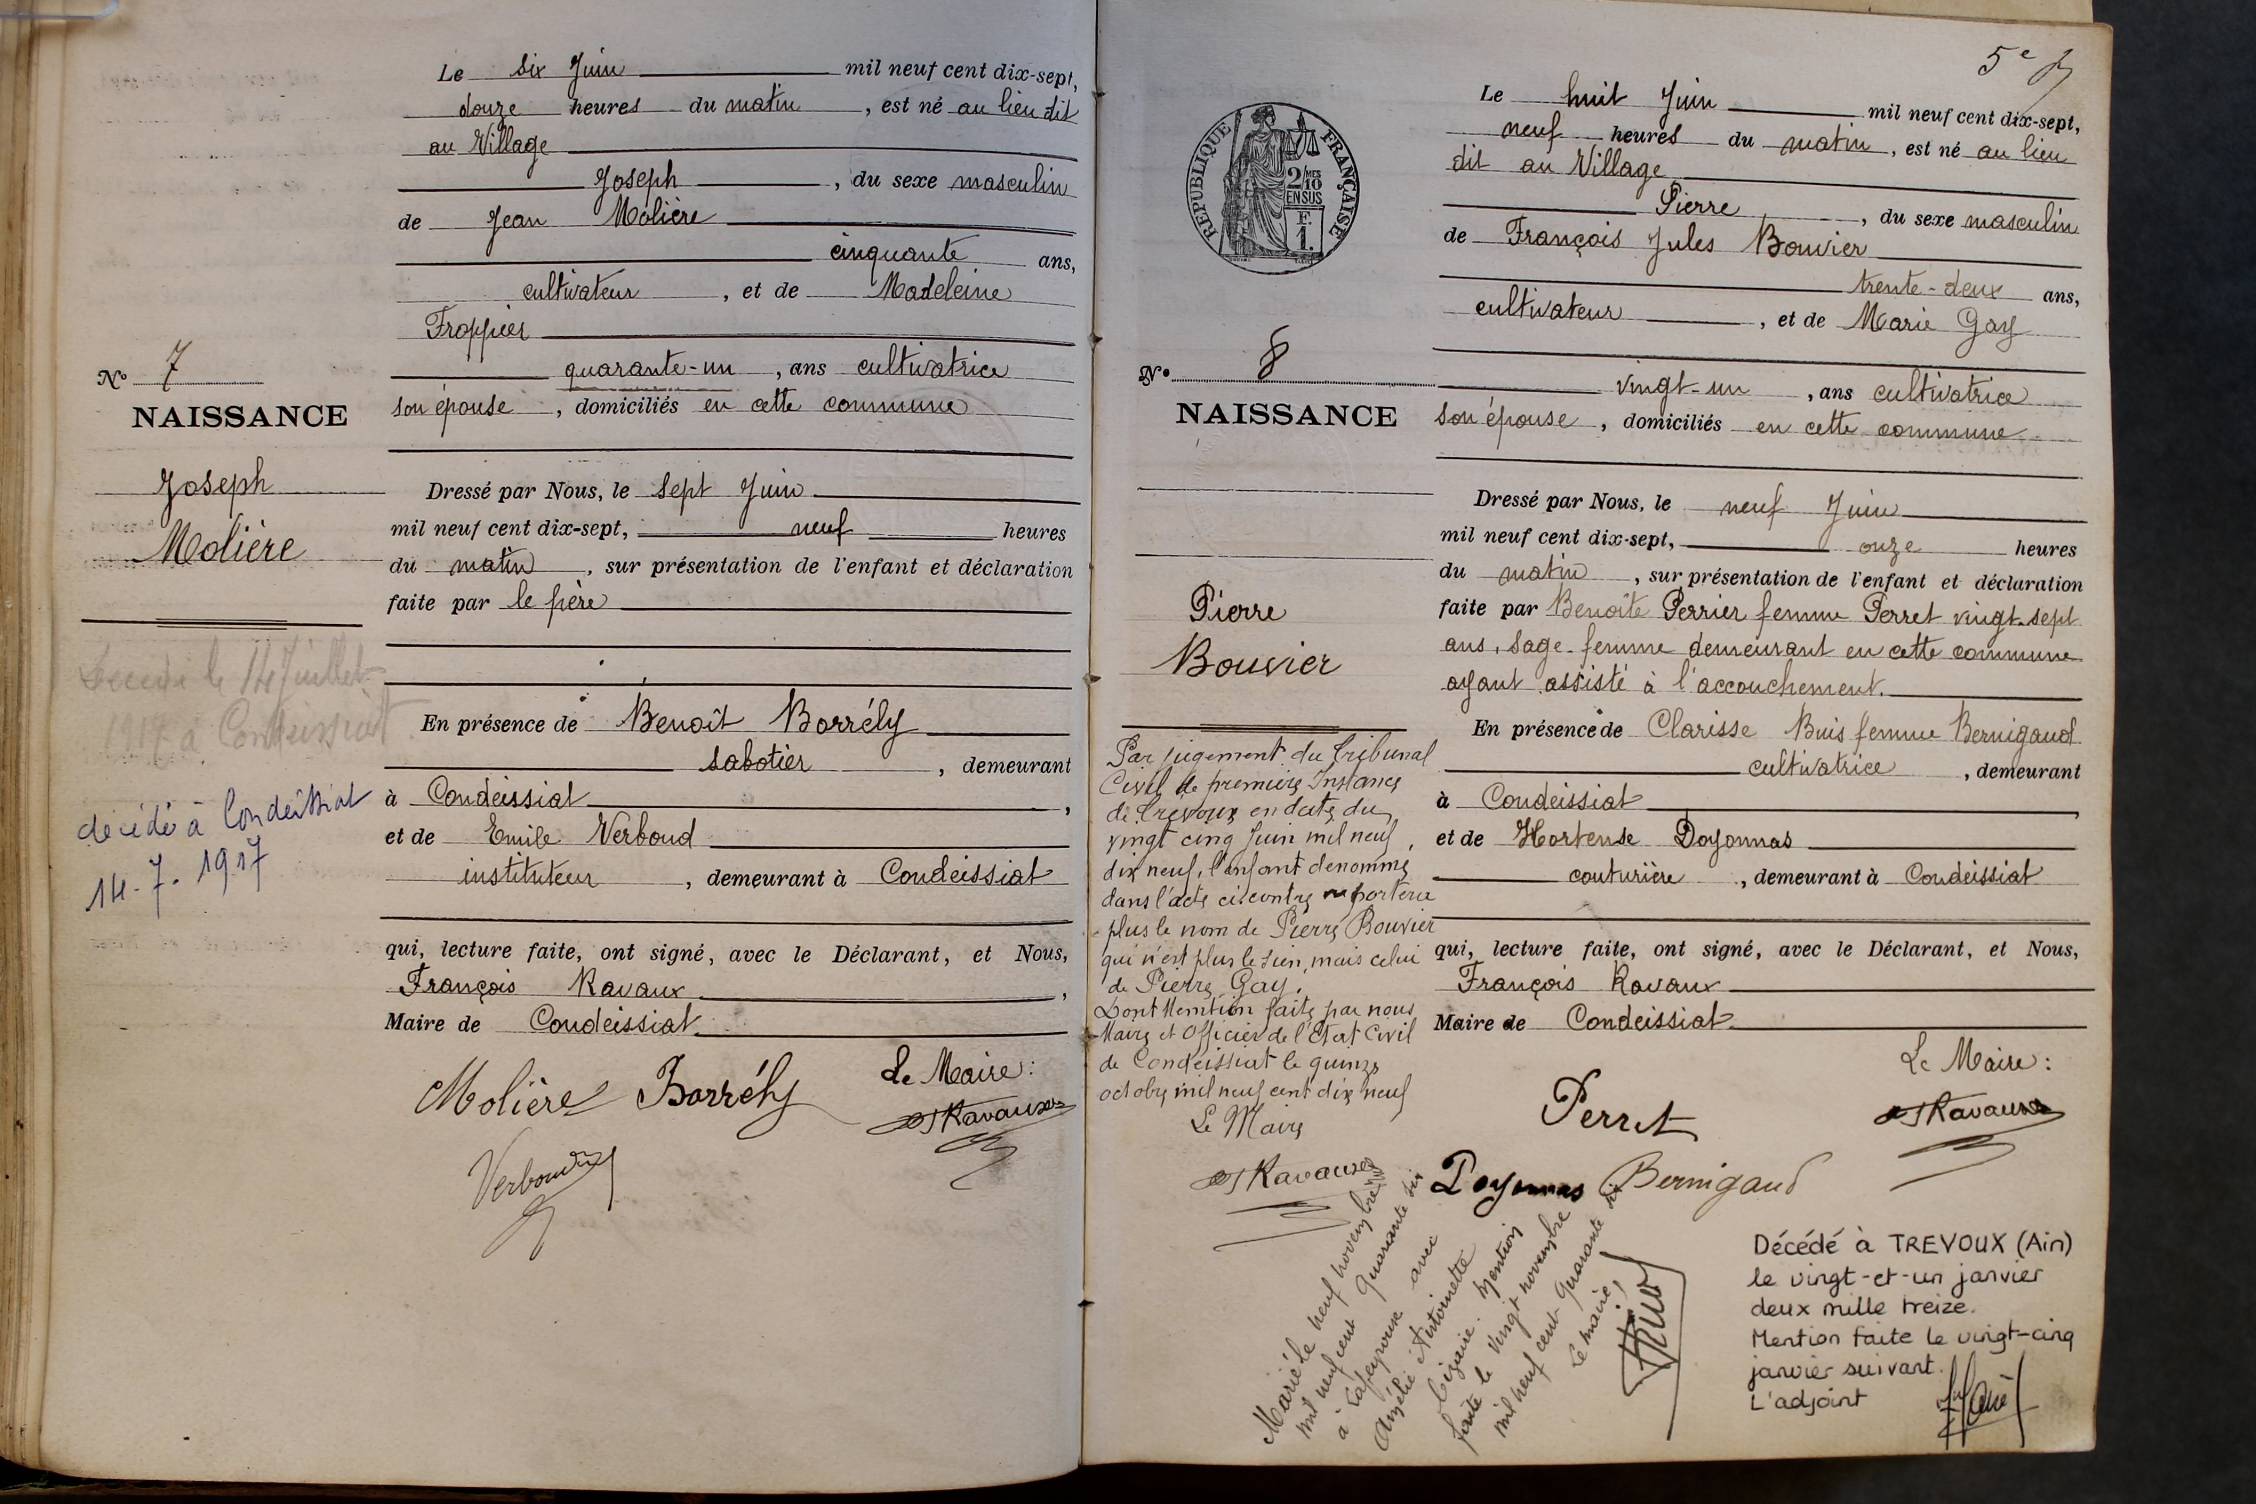 Le six Juin mil neuf cent dix-sept,
douze heures du matin, est né au lieu dit
au Village
Joseph, du sexe masculin
de Jean Molière
cinquante ans,
cultivateur, et de Madeleine
Froppier
quarante-un, ans cultivatrice
son épouse, domiciliés en cette commune
N° 7
NAISSANCE
Joseph
Molière
Dressé par Nous, le sept Juin
mil neuf cent dix-sept, neuf heures
du matin, sur présentation de l'enfant et déclaration
faite par le père
Décédé le 14 Juillet
1917 à Condeissiat
décédé à Condeissiat
14-7-1917
En présence de Benoît Borrély
sabotier, demeurant
à Condeissiat,
et de Emile Verboud
instituteur, demeurant à Condeissiat
qui, lecture faite, ont signé, avec le Déclarant, et Nous,
François Ravaux,
Maire de Condeissiat
Molière Borrély
Le Maire:
Ravaux
Verboud
5e
RÉPUBLIQUE FRANÇAISE
2/10 MES
EN SUS
F.
1.
Le huit Juin mil neuf cent dix-sept,
neuf heures du matin, est né au lieu
dit au Village
Pierre, du sexe masculin
de François Jules Bouvier
trente-deux ans,
cultivateur, et de Marie Gay
vingt-un, ans cultivatrice
son épouse, domiciliés en cette commune
N° 8
NAISSANCE
Pierre
Bouvier
Dressé par Nous, le neuf Juin
mil neuf cent dix-sept, onze heures
du matin, sur présentation de l'enfant et déclaration
faite par Benoîte Perrier femme Perret vingt-sept
ans, sage-femme demeurant en cette commune
ayant assisté à l'accouchement.
En présence de Clarisse Buis femme Bernigaud
cultivatrice, demeurant
à Condeissiat,
et de Hortense Doyonnas
couturière, demeurant à Condeissiat
qui, lecture faite, ont signé, avec le Déclarant, et Nous,
François Ravaux
Maire de Condeissiat
Par jugement du Tribunal
Civil de première Instance
de Trevoux en date du
vingt cinq Juin mil neuf
dix neuf, l'enfant dénommé
dans l'acte ci contre ne portera
plus le nom de Pierre Bouvier
qui n'est plus le sien, mais celui
de Pierre Gay.
Dont Mention faite par nous
Maire et Officier de l'Etat Civil
de Condeissiat le quinze
octobre mil neuf cent dix neuf
Le Maire
Ravaux
Le Maire:
Perret
Ravaux
Doyonnas Bernigaud
Marié le neuf novembre
mil neuf cent quarante six
à Lapeyrouse avec
Amélie Antoinette
Cizaire. Mention
faite le vingt novembre
mil neuf cent quarante six
Le maire,
Décédé à TREVOUX (Ain)
le vingt-et-un janvier
deux mille treize.
Mention faite le vingt-cinq
janvier suivant.
L'adjoint